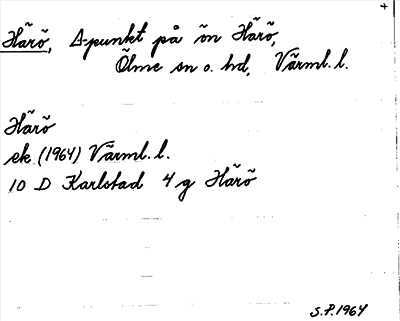 +
Härö, Δ-punkt på ön Härö,
Ölme sn o. hd, Värml. l.
Härö
ek. (1964) Värml. l.
10 D Karlstad 4 g Härö
S.P. 1964